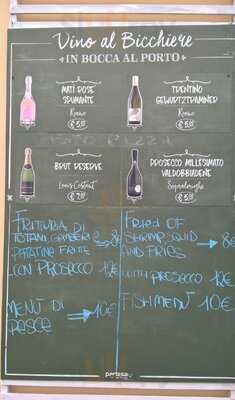 Vino al Bicchiere
IN BOCCA AL PORTO
MATI ROSE
SPUMANTE
€ 5,00
TRENTINO
GEWURTZTRAMINER
€ 5,00
BRUT RESERVE
Louis Costant
€ 7,00
PROSECCO MILLESIMATO
VALDOBBIADENE
€ 5,00
FRITTURA DI
TOTANI, GAMBERI
PATATINE FRITTE → 8€
CON PROSECCO 12€
MENÙ DI → 10€
PESCE
FRIED OF
SHRIMP SQUID → 8€
AND FRIES
WITH PROSECCO 12€
FISH MENÙ 10€